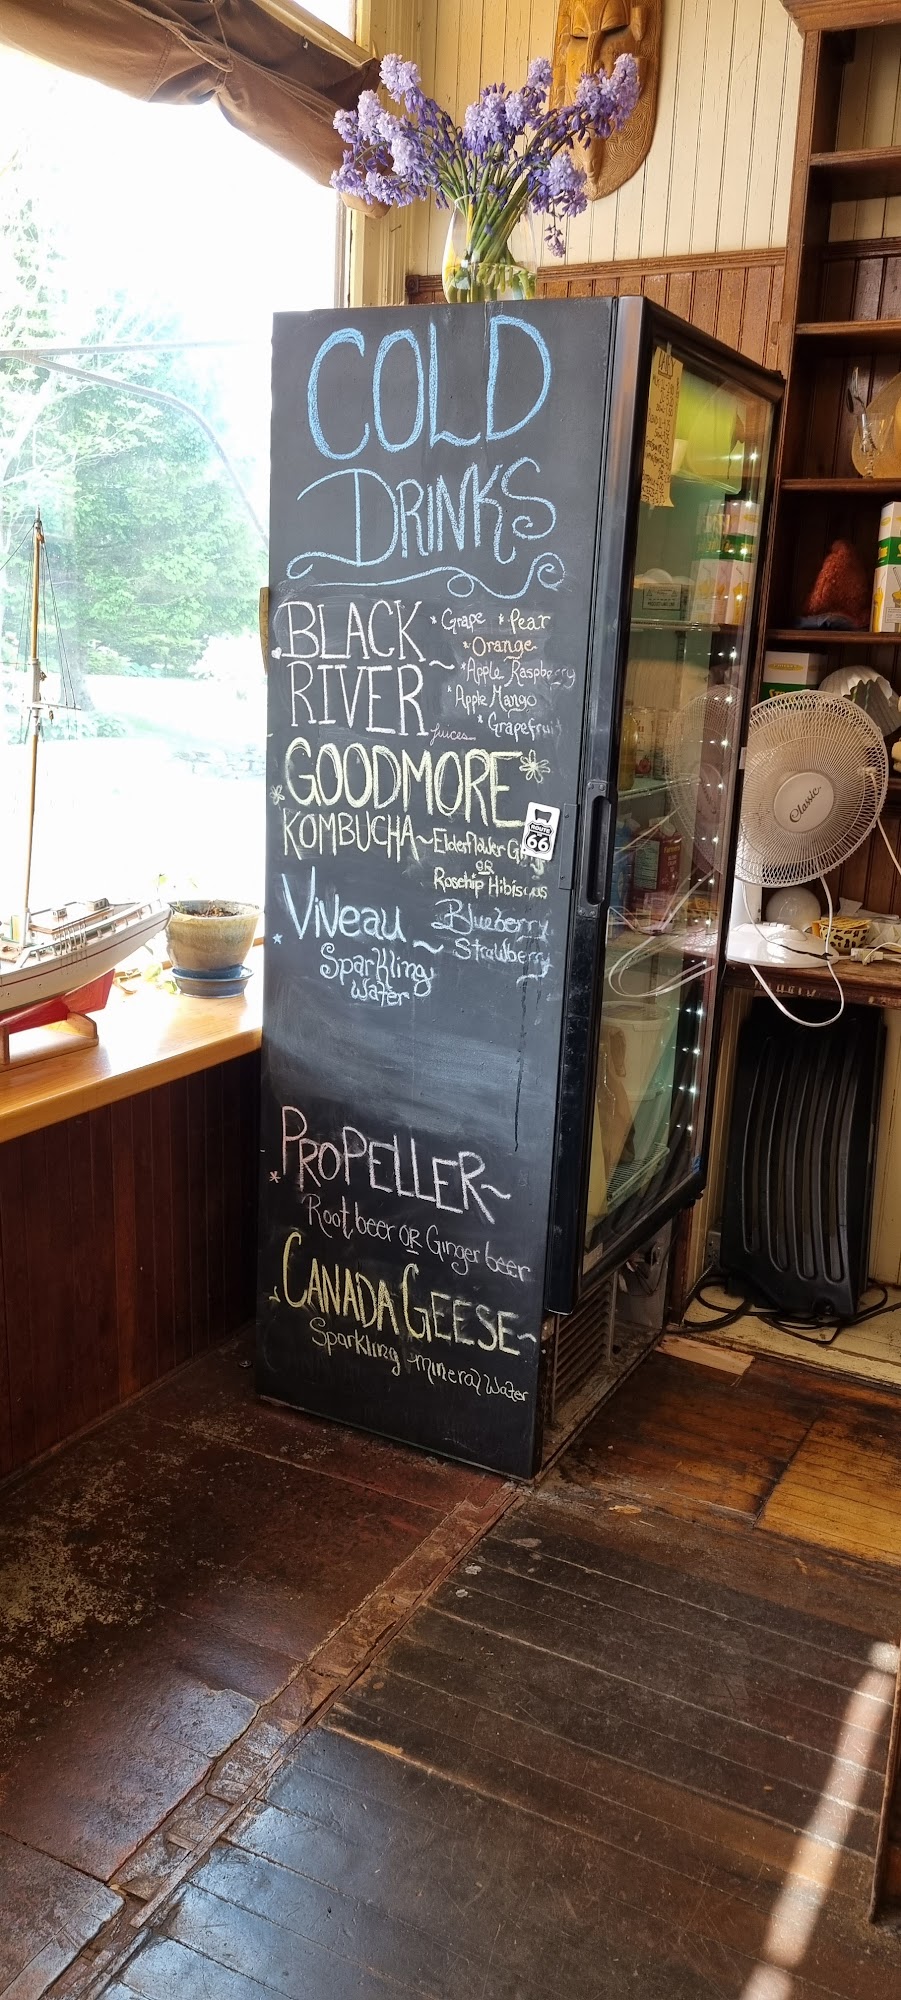 COLD
DRINKS
BLACK
RIVER ~
juices
* Grape * Pear
* Orange
* Apple Raspberry
* Apple Mango
* Grapefruit
GOODMORE
KOMBUCHA ~ Elderflower
OR
Rosehip Hibiscus
ROUTE
66
ViVeau ~
Sparkling
Water
Blueberry
Strawberry
PROPELLER ~
Root beer OR Ginger beer
CANADA GEESE ~
Sparkling mineral Water
Classic